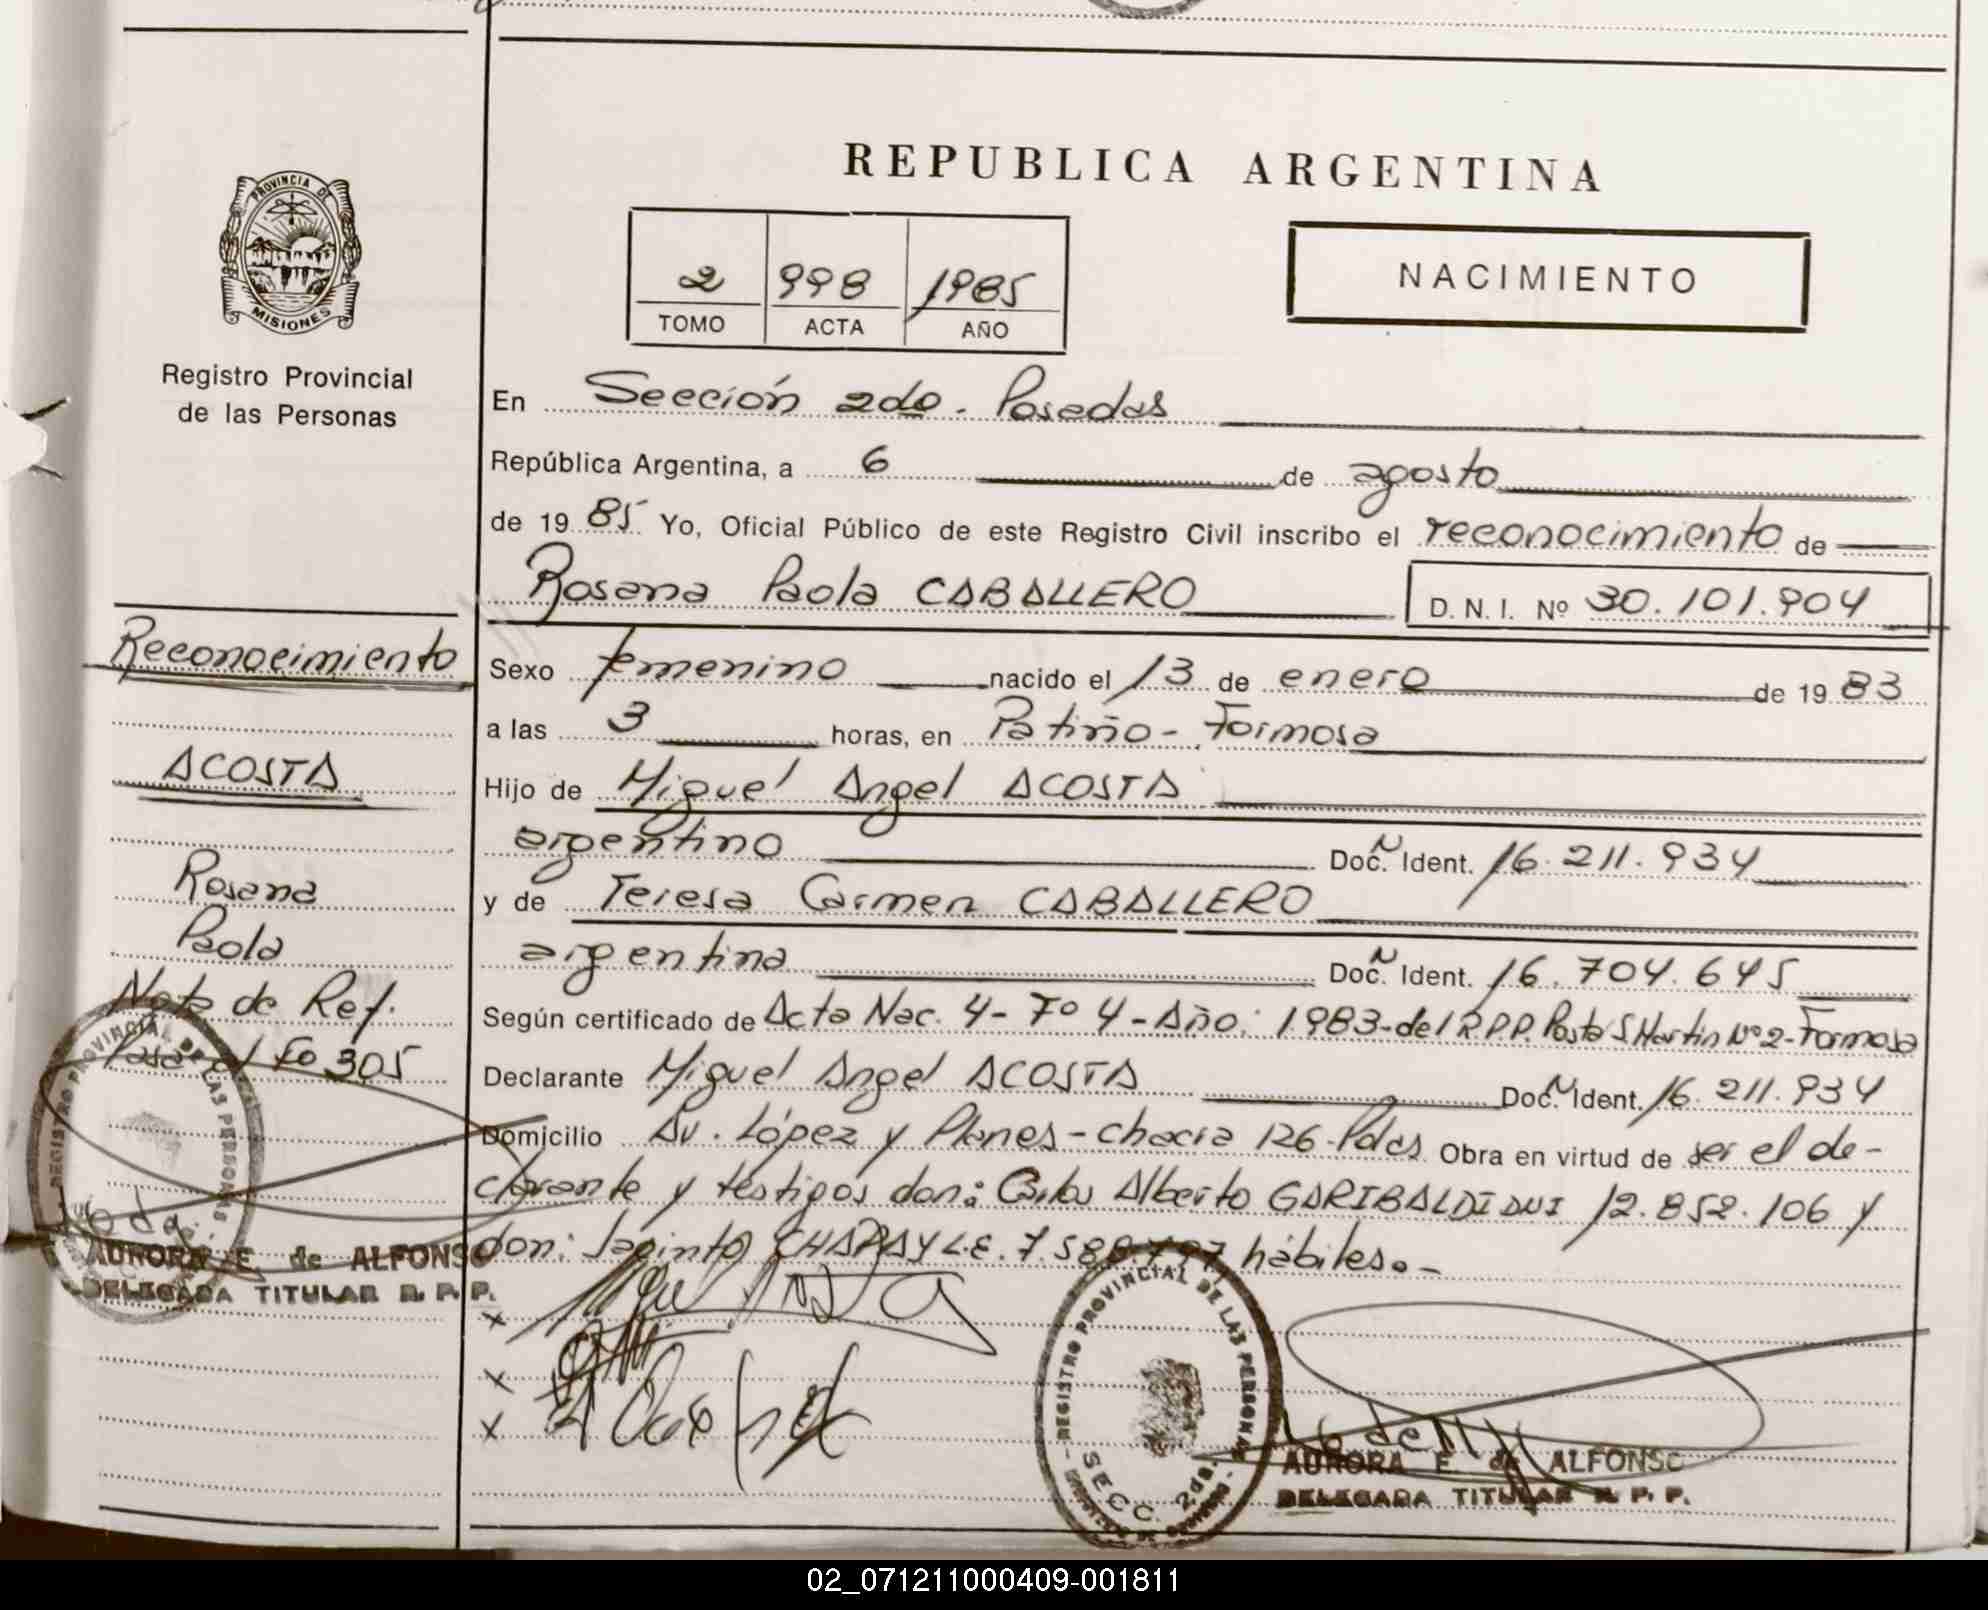 REPUBLICA ARGENTINA
PROVINCIA DE
MISIONES
Registro Provincial
de las Personas
2 998 1985
TOMO ACTA AÑO
NACIMIENTO
En Sección 2da. Posadas
República Argentina, a 6 de agosto
de 1985 Yo, Oficial Público de este Registro Civil inscribo el reconocimiento de
Rosana Paola CABALLERO D. N. I. Nº 30.101.904
Sexo femenino nacido el 13 de enero de 1983
a las 3 horas, en Patiño - Formosa
Hijo de Miguel Angel ACOSTA
argentino Doc. Ident. 16.211.934
y de Teresa Carmen CABALLERO
argentina Doc. Ident. 16.704.645
Según certificado de Acta Nac. 4-Tº 4-Año: 1983-del R.P.P. Posta S. Martin Nº 2-Formosa
Declarante Miguel Angel ACOSTA Doc. Ident. 16.211.934
Domicilio Av. López y Planes-chacra 126-Pdas Obra en virtud de ser el de-
clarante y testigos don: Carlos Alberto GARIBALDI DNI 12.852.106 y
don: Jacinto L.E. hábiles.-
Reconocimiento
ACOSTA
Rosana
Paola
Nota de Ref.
Pasa al Fº 305
REGISTRO PROVINCIAL DE LAS PERSONAS
AURORA E. de ALFONSO
DELEGADA TITULAR R. P. P.
x
x
x
REGISTRO PROVINCIAL DE LAS PERSONAS
SECC. 2da.
AURORA E. de ALFONSO
DELEGADA TITULAR R. P. P.
02_071211000409-001811